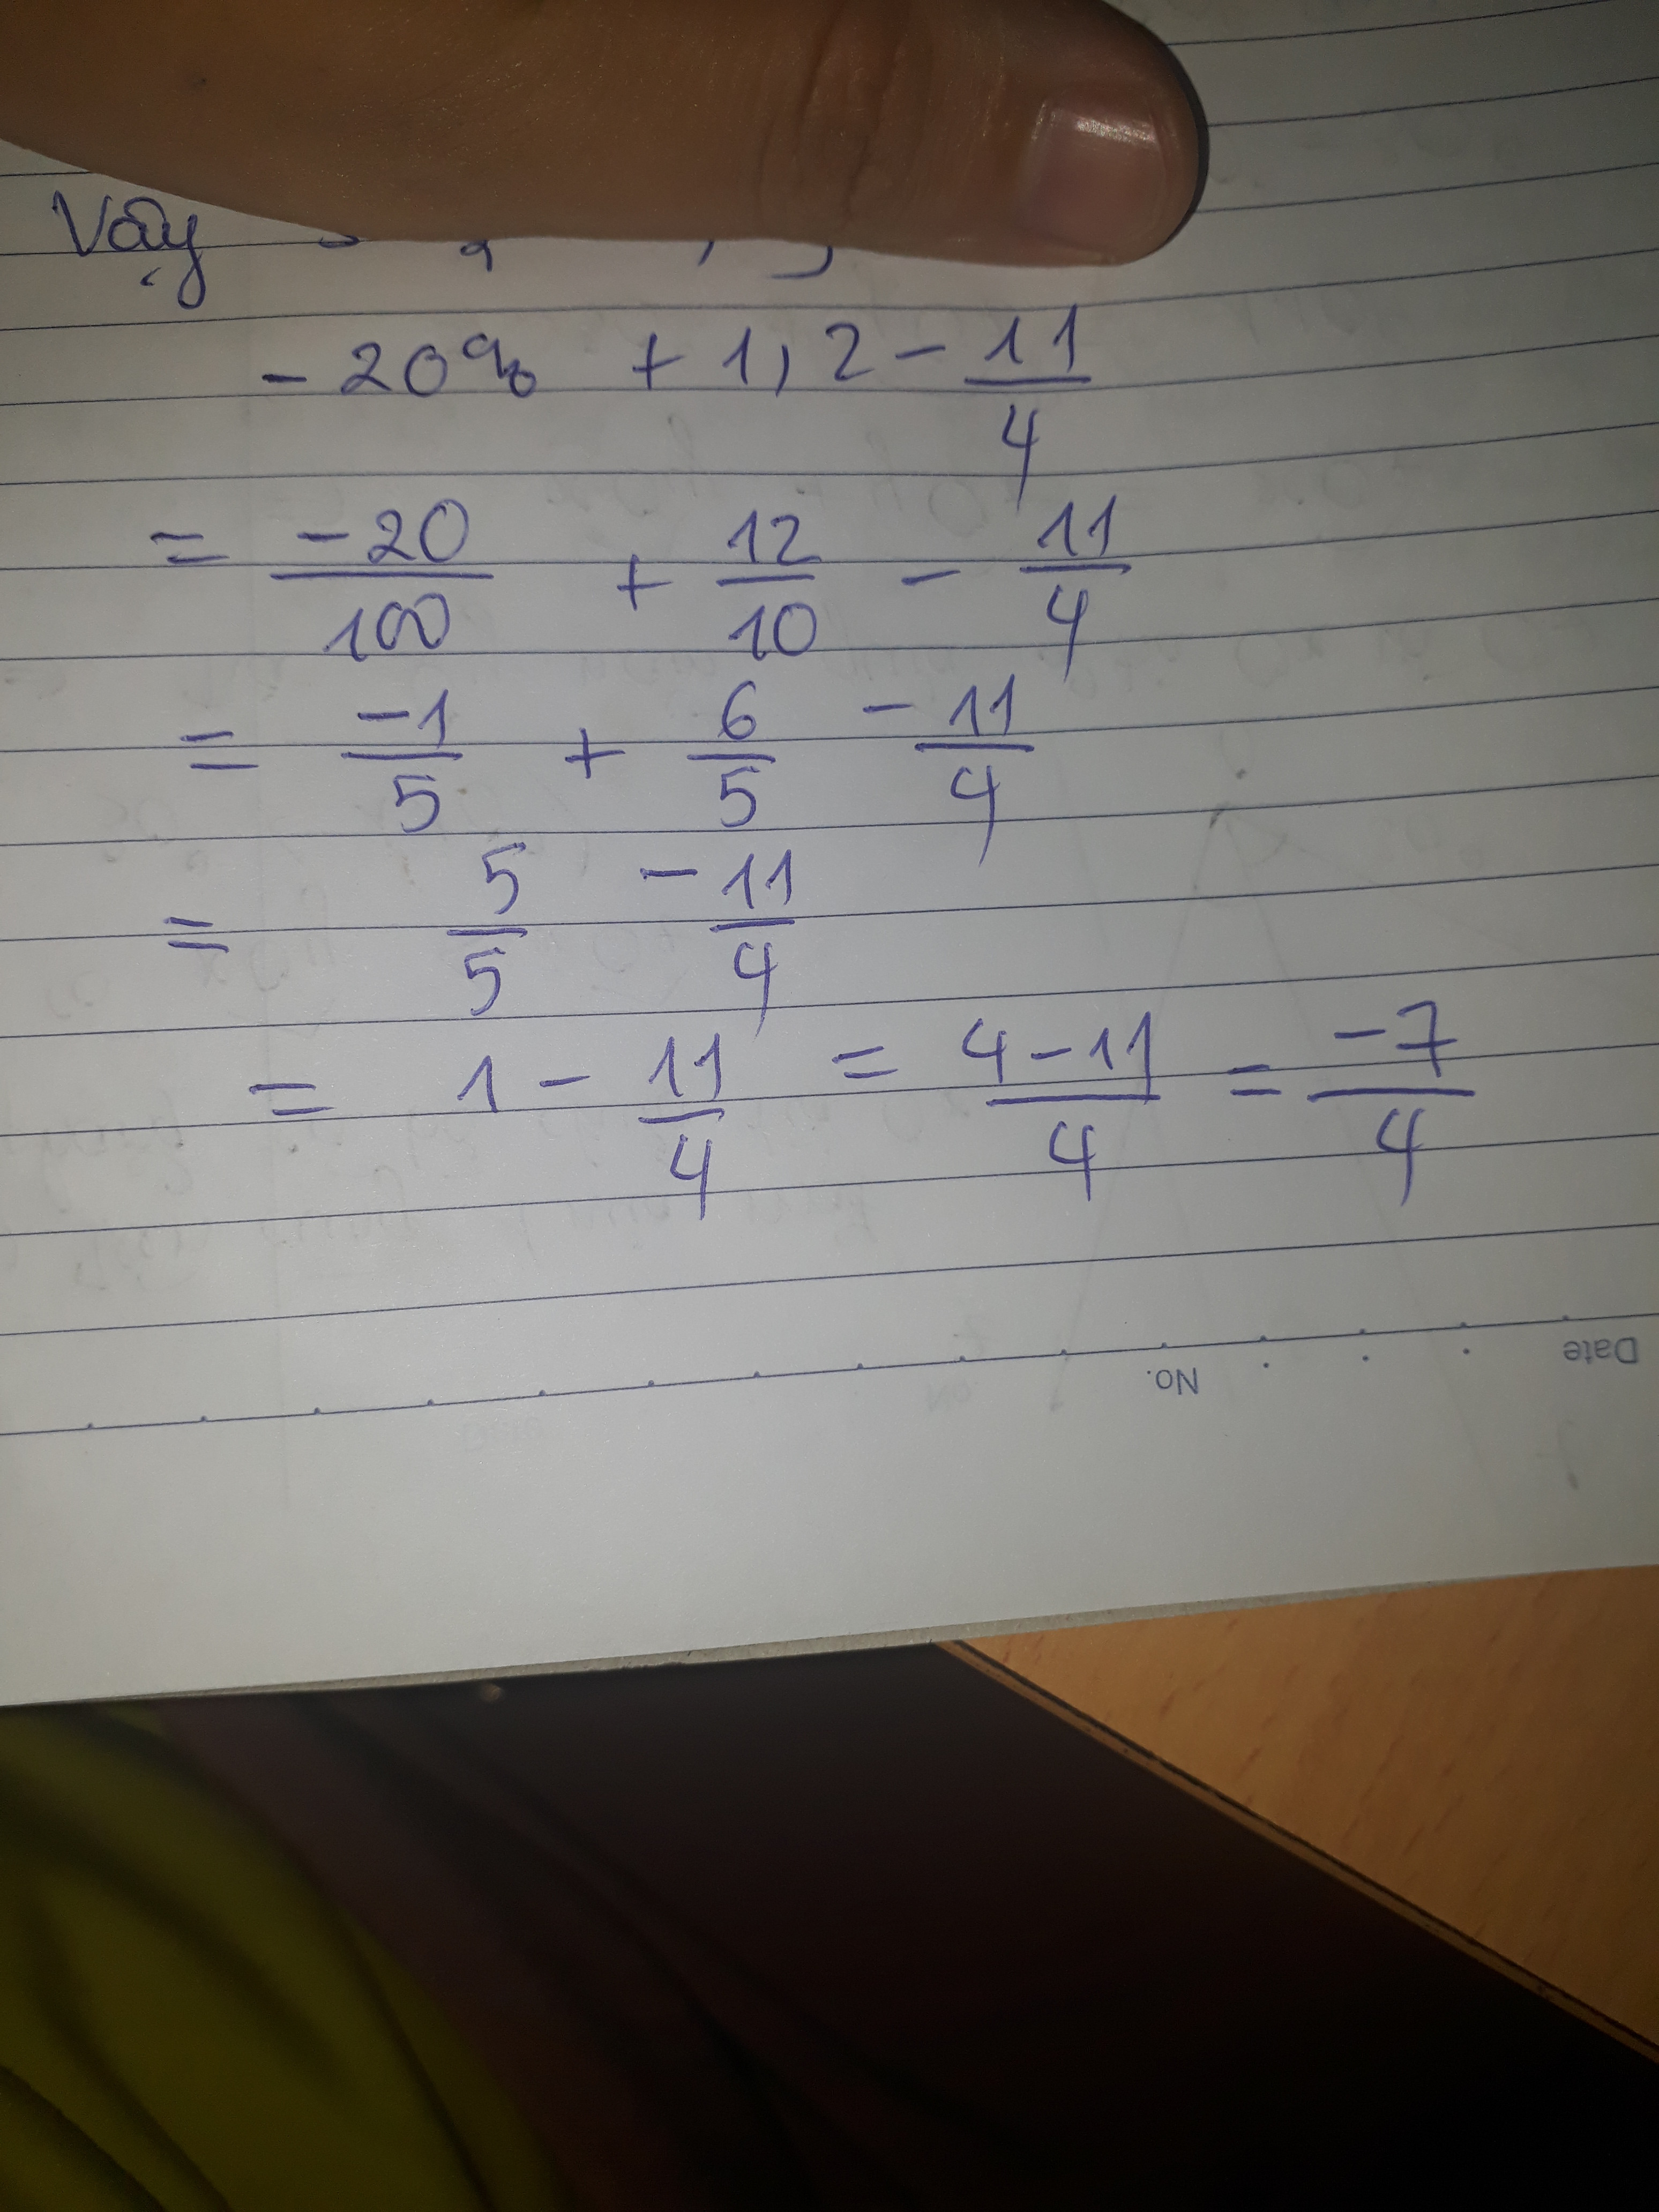 Vậy
- 20% + 1,2 - 11/4
= -20/100 + 12/10 - 11/4
= -1/5 + 6/5 - 11/4
= 5/5 - 11/4
= 1 - 11/4 = 4-11/4 = -7/4
Date
No.